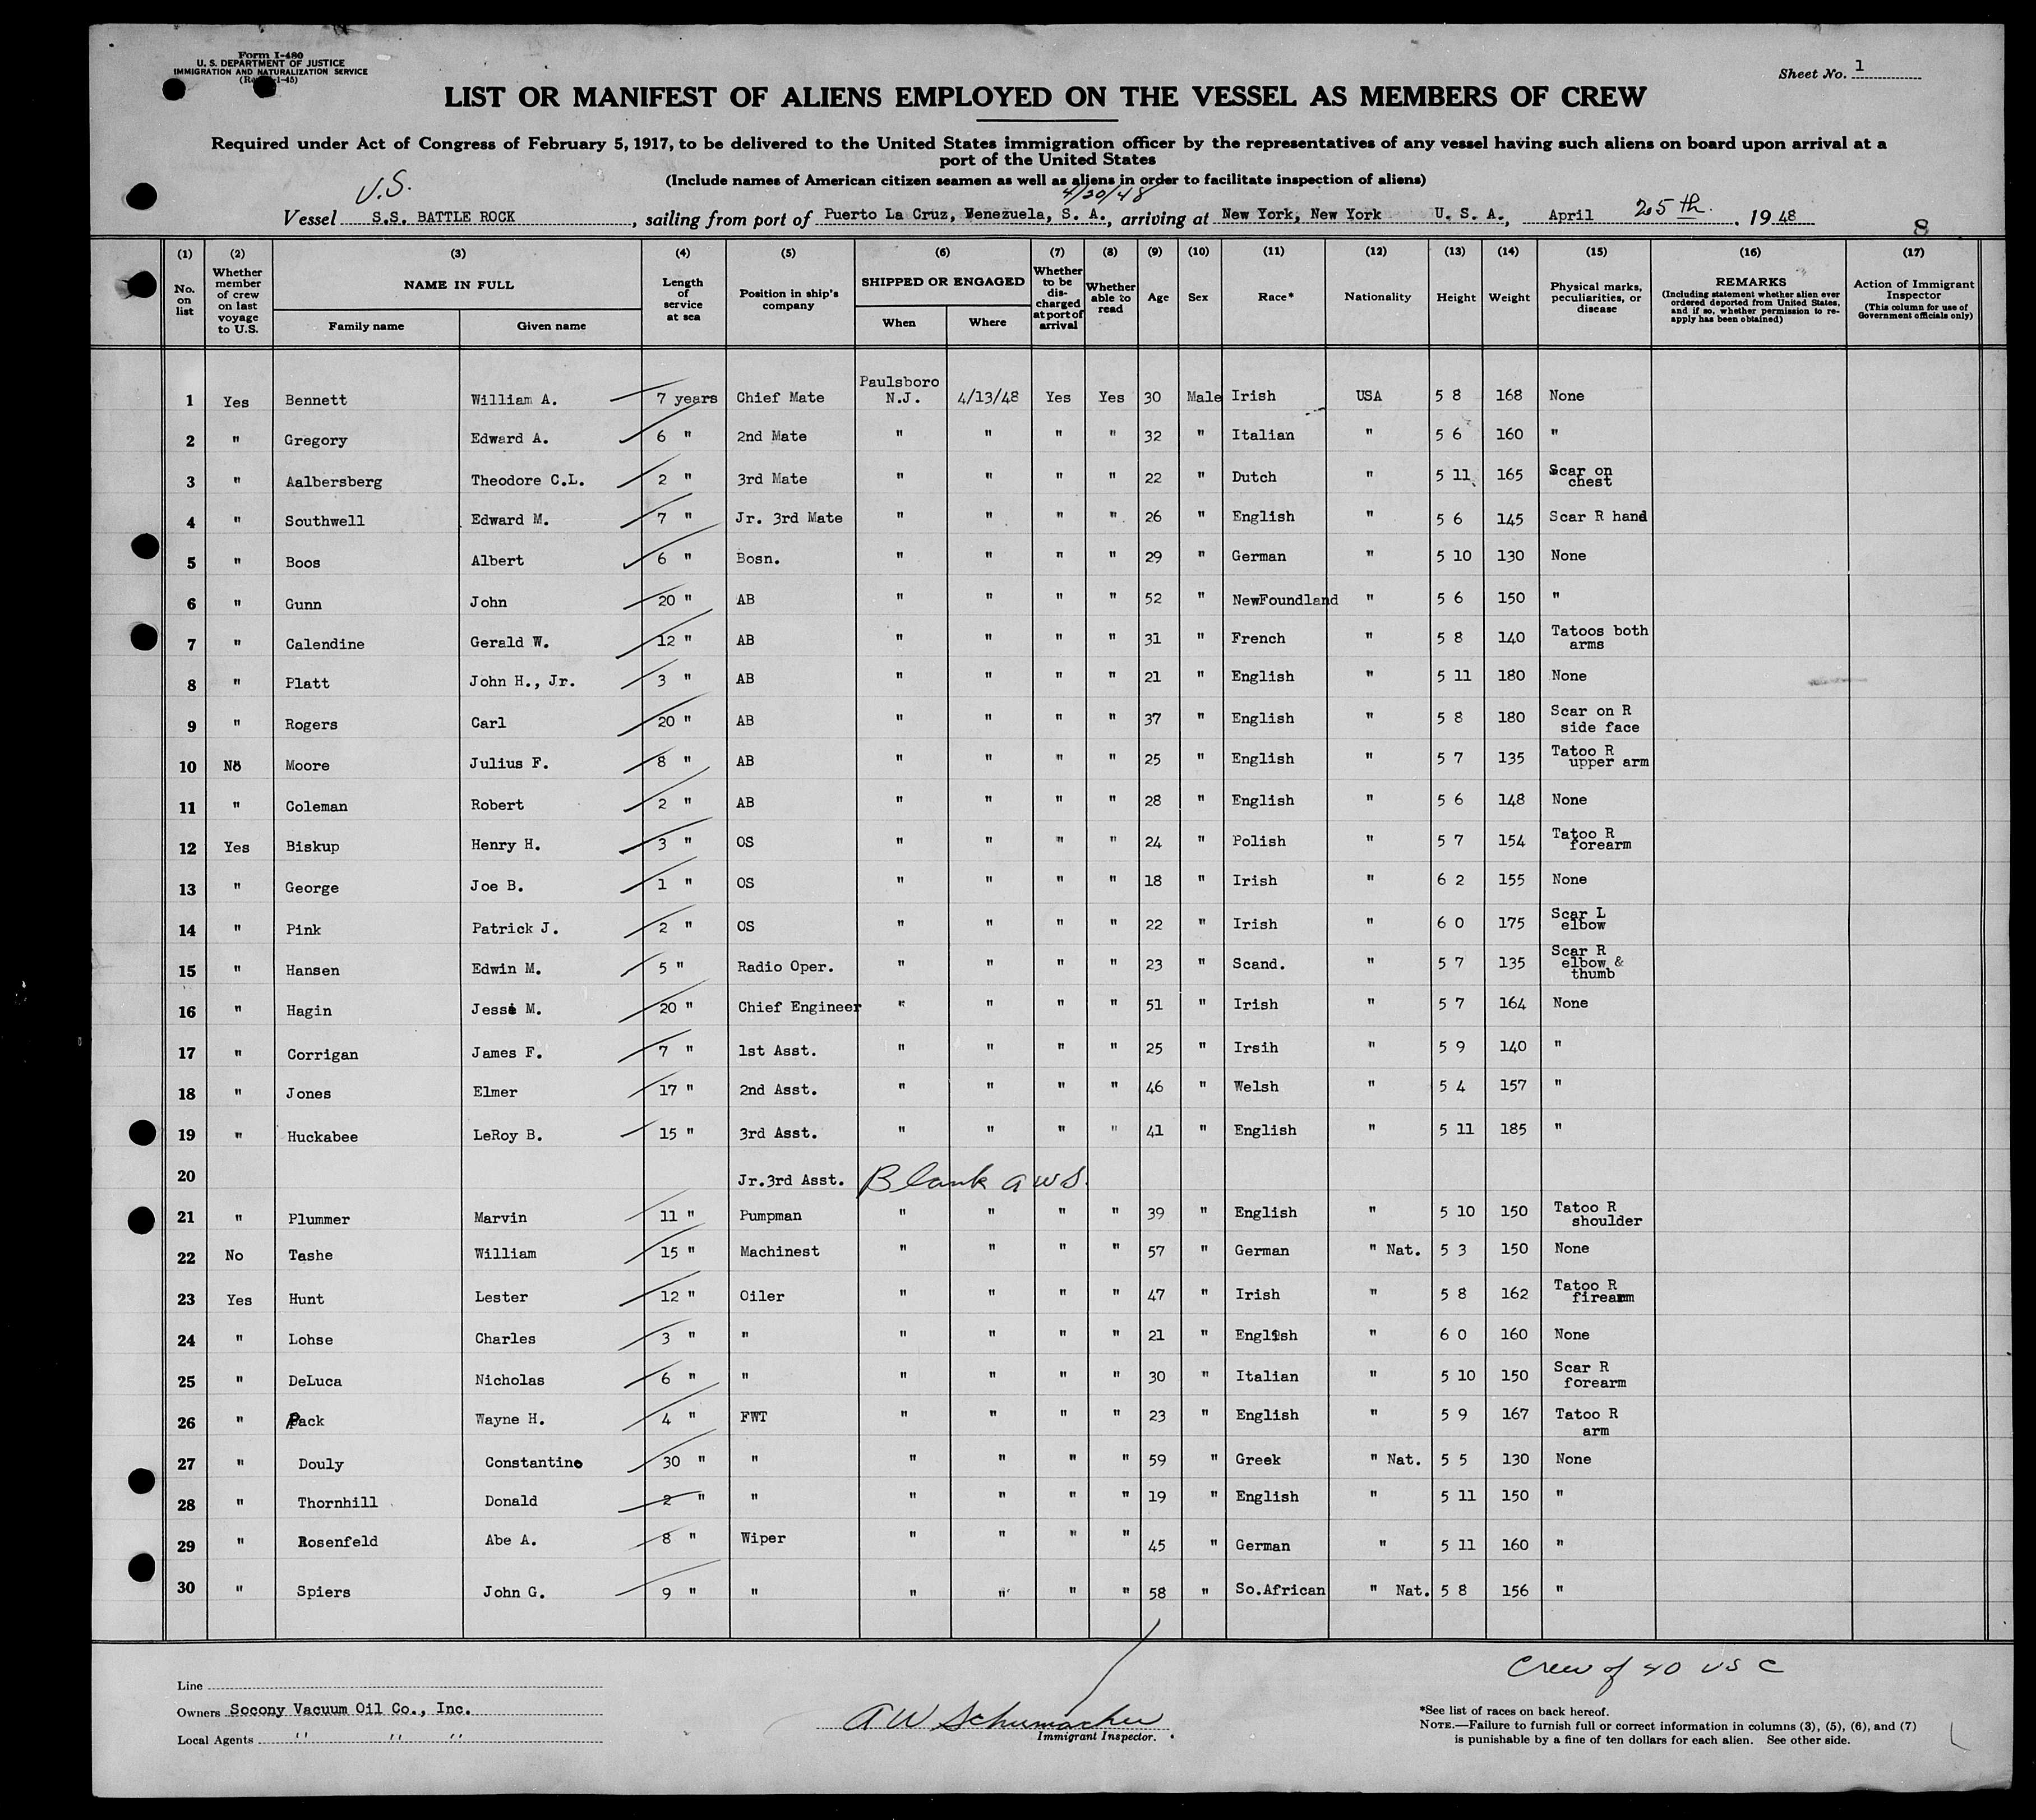 Form I-480
U. S. DEPARTMENT OF JUSTICE
IMMIGRATION AND NATURALIZATION SERVICE
Sheet No. 1
LIST OR MANIFEST OF ALIENS EMPLOYED ON THE VESSEL AS MEMBERS OF CREW
Required under Act of Congress of February 5, 1917, to be delivered to the United States immigration officer by the representatives of any vessel having such aliens on board upon arrival at a
port of the United States
(Include names of American citizen seamen as well as aliens in order to facilitate inspection of aliens)
U.S. 4/20/48
Vessel S.S. BATTLE ROCK, sailing from port of Puerto La Cruz, Venezuela, S. A., arriving at New York, New York U. S. A., April 25th. 19 48
8
(1) (2) (3) (4) (5) (6) (7) (8) (9) (10) (11) (12) (13) (14) (15) (16) (17)
No. on list Whether member of crew on last voyage to U.S. NAME IN FULL Family name Given name Length of service at sea Position in ship's company SHIPPED OR ENGAGED When Where Whether to be discharged at port of arrival Whether able to read Age Sex Race* Nationality Height Weight Physical marks, peculiarities, or disease REMARKS (Including statement whether alien ever ordered deported from United States, and if so, whether permission to re-apply has been obtained) Action of Immigrant Inspector (This column for use of Government officials only)
1 Yes Bennett William A. 7 years Chief Mate Paulsboro N.J. 4/13/48 Yes Yes 30 Male Irish USA 5 8 168 None
2 " Gregory Edward A. 6 " 2nd Mate " " " " 32 " Italian " 5 6 160 "
3 " Aalbersberg Theodore C.L. 2 " 3rd Mate " " " " 22 " Dutch " 5 11 165 Scar on chest
4 " Southwell Edward M. 7 " Jr. 3rd Mate " " " " 26 " English " 5 6 145 Scar R hand
5 " Boos Albert 6 " Bosn. " " " " 29 " German " 5 10 130 None
6 " Gunn John 20 " AB " " " " 52 " NewFoundland " 5 6 150 "
7 " Calendine Gerald W. 12 " AB " " " " 31 " French " 5 8 140 Tatoos both arms
8 " Platt John H., Jr. 3 " AB " " " " 21 " English " 5 11 180 None
9 " Rogers Carl 20 " AB " " " " 37 " English " 5 8 180 Scar on R side face
10 No Moore Julius F. 8 " AB " " " " 25 " English " 5 7 135 Tatoo R upper arm
11 " Coleman Robert 2 " AB " " " " 28 " English " 5 6 148 None
12 Yes Biskup Henry H. 3 " OS " " " " 24 " Polish " 5 7 154 Tatoo R forearm
13 " George Joe B. 1 " OS " " " " 18 " Irish " 6 2 155 None
14 " Pink Patrick J. 2 " OS " " " " 22 " Irish " 6 0 175 Scar L elbow
15 " Hansen Edwin M. 5 " Radio Oper. " " " " 23 " Scand. " 5 7 135 Scar R elbow & thumb
16 " Hagin Jessi M. 20 " Chief Engineer " " " " 51 " Irish " 5 7 164 None
17 " Corrigan James F. 7 " 1st Asst. " " " " 25 " Irsih " 5 9 140 "
18 " Jones Elmer 17 " 2nd Asst. " " " " 46 " Welsh " 5 4 157 "
19 " Huckabee LeRoy B. 15 " 3rd Asst. " " " " 41 " English " 5 11 185 "
20 Jr.3rd Asst. Blank AWS.
21 " Plummer Marvin 11 " Pumpman " " " " 39 " English " 5 10 150 Tatoo R shoulder
22 No Tashe William 15 " Machinest " " " " 57 " German " Nat. 5 3 150 None
23 Yes Hunt Lester 12 " Oiler " " " " 47 " Irish " 5 8 162 Tatoo R firearm
24 " Lohse Charles 3 " " " " " " 21 " English " 6 0 160 None
25 " DeLuca Nicholas 6 " " " " " " 30 " Italian " 5 10 150 Scar R forearm
26 " Pack Wayne H. 4 " FWT " " " " 23 " English " 5 9 167 Tatoo R arm
27 " Douly Constantine 30 " " " " " " 59 " Greek " Nat. 5 5 130 None
28 " Thornhill Donald 2 " " " " " " 19 " English " 5 11 150 "
29 " Rosenfeld Abe A. 8 " Wiper " " " " 45 " German " 5 11 160 "
30 " Spiers John G. 9 " " " " " " 58 " So.African " Nat. 5 8 156 "
Crew of 40 USC
Line
Owners Socony Vacuum Oil Co., Inc.
Local Agents " " "
A W Schumacher
Immigrant Inspector.
*See list of races on back hereof.
NOTE.—Failure to furnish full or correct information in columns (3), (5), (6), and (7)
is punishable by a fine of ten dollars for each alien. See other side.